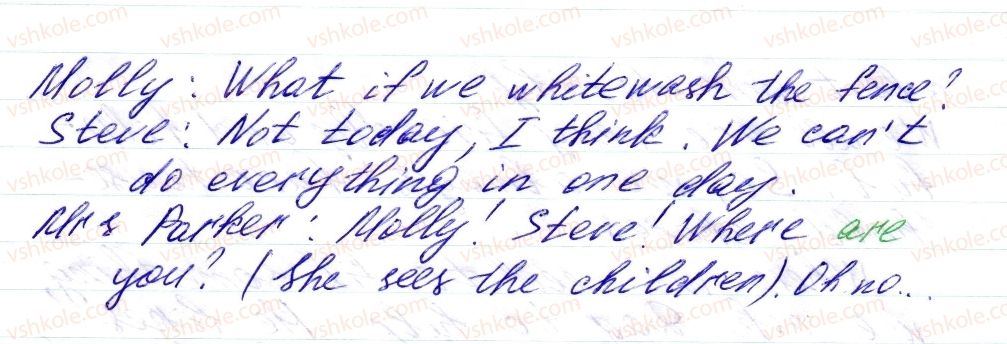 Molly: What if we whitewash the fence?
Steve: Not today, I think. We can't
do everything in one day.
Mrs Parker: Molly! Steve! Where are
you? (She sees the children). Oh no...